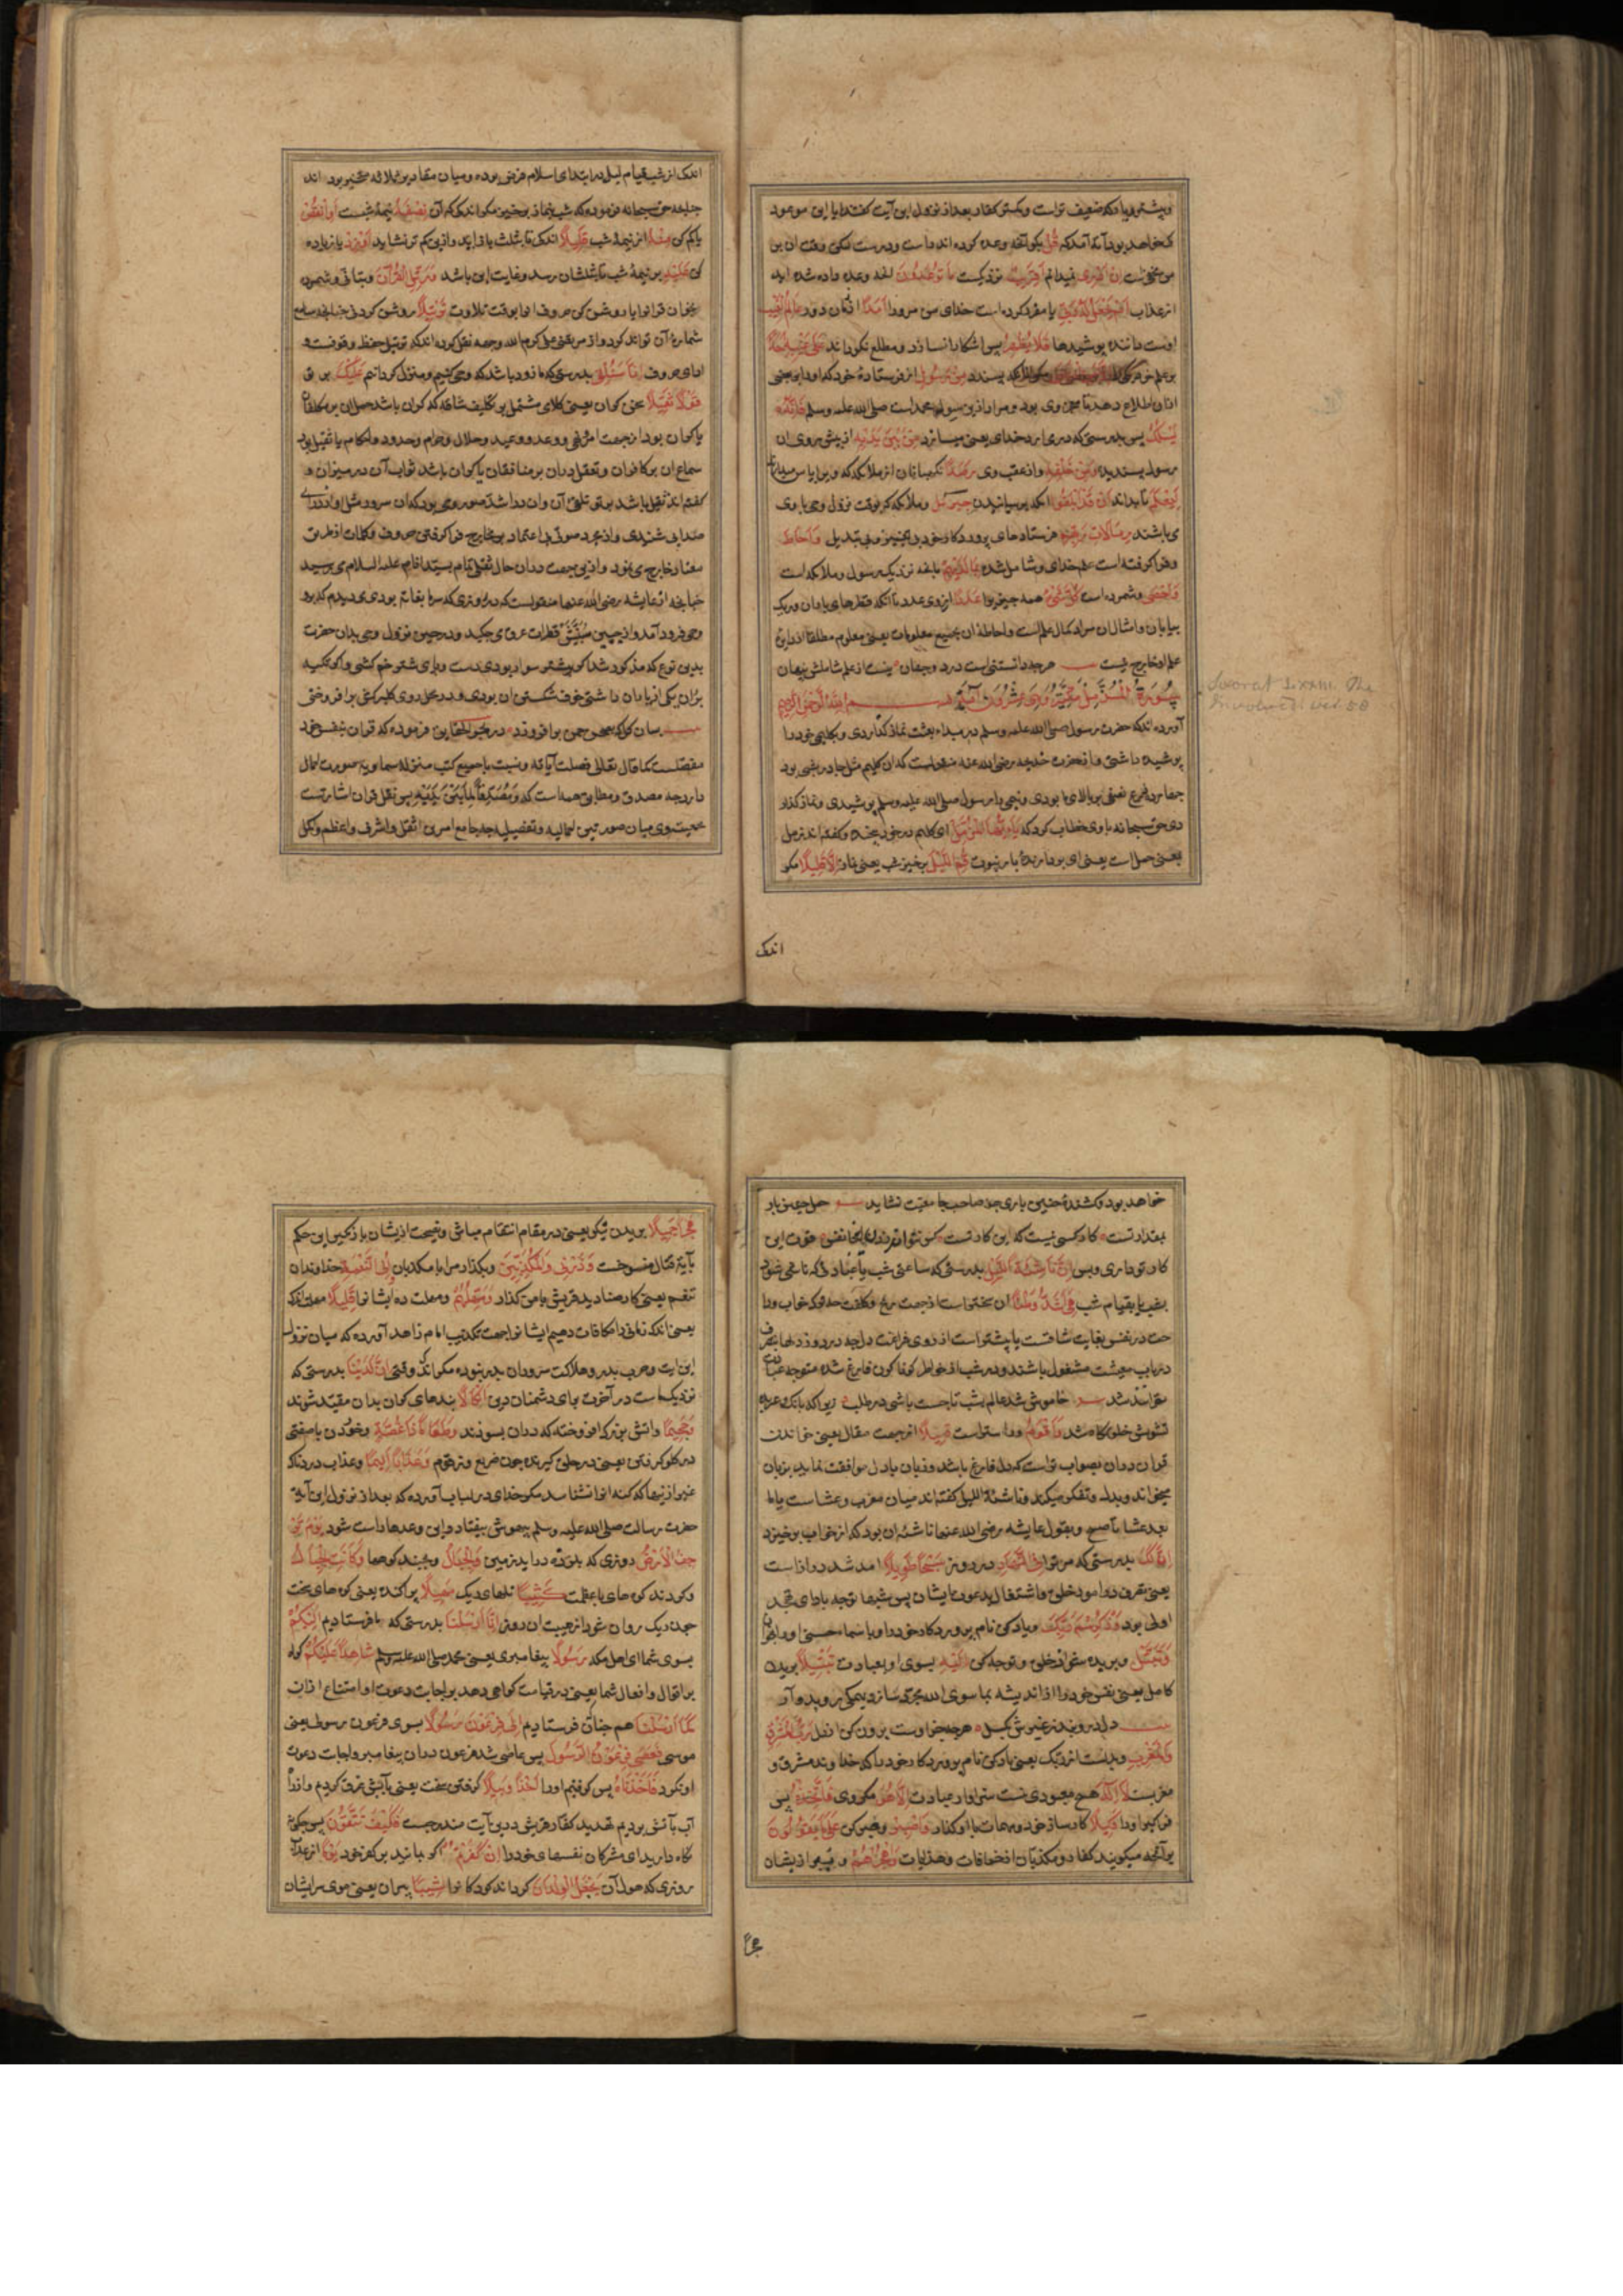 و بیشتر و یا که ضعیف تر است و کمتر کفار بعد از نزول این آیت گفتند ایا این موعود
که خواهد بود آیه آمد که قُلْ بگو آنچه وعده کرده اند راست و درست لیکن وقت ان بر
من مخفی است اِنْ اَدْرِی نمیدانم اَقَرِیبٌ نزدیکست مَا تُوعَدُونَ انچه وعده داده شده اید
از عذاب اَمْ یَجْعَلُ لَهُ رَبِّی یا مقرر کرده است خدای من مر ورا اَمَدًا از زمان دور عَالِمُ الْغَیْبِ
اوست داننده پوشیدها فَلَا یُظْهِرُ پس اشکارا نسازد و مطلع نکرداند عَلَی غَیْبِهِ اَحَدًا
بر علم خود کسی را پسندد مِنْ رَسُولٍ از فرستاده خود که او را بر بعضی
ازان اطلاع دهد تا معجزه وی بود و مراد ازین رسول محمد است صلی الله علیه وسلم فَاِنَّهُ
یَسْلُکُ پس بدرستی که در می ارد خدای یعنی میسازد مِنْ بَیْنِ یَدَیْهِ از پیش روی ان
رسول پسندیده وَمِنْ خَلْفِهِ و از عقب وی رَصَدًا نکهبانان از ملائکه که ویرا پاس میدارند
لِیَعْلَمَ تا بداند اَنْ قَدْ اَبْلَغُوا انکه برسانیدن جبرئیل و ملائکه که بوقت نزول وی با وی
می باشند رِسَالَاتِ رَبِّهِمْ فرستادهای پروردکار خود بی تغییر و بی تبدیل وَاَحَاطَ
و فرا کرفته است علم خدای و شامل شده بِمَا لَدَیْهِمْ بانچه نزدیک رسول و ملائکه است
وَاَحْصَی و شمرده است کُلَّ شَیْءٍ همه چیز را عَدَدًا از روی عدد تا انکه قطرهای باران و ریک
بیابان و امثال ان مراد کمال علم است و احاطه ان بجمیع معلومات یعنی معلوم مطلقا از دایره
علم او خارج نیست هرچه دانستنی است در دو جهان نیست از علم شاملش پنهان
سُورَةُ الْمُزَّمِّلِ مَکِّیَّةٌ وَهِیَ عِشْرُونَ آیَةً بِسْمِ اللّٰهِ الرَّحْمٰنِ الرَّحِیمِ
Soorat LXXIII. The
Involved: ver. 20
آورده اند که حضرت رسول صلی الله علیه وسلم در مبداء بعثت نماز گذاردی و بکلیمی خود را
پوشیده داشتی و از حضرت خدیجه رضی الله عنه منقول است که ان کلیم مثل چادر شبی بود
چهارده ذرع نصفی بر بالای ما بودی و نیمی را رسول صلی الله علیه وسلم پوشیدی و نماز کذار
دی حق سبحانه با وی خطاب کرد که یَا اَیُّهَا الْمُزَّمِّلُ ای کلیم در خود پیچیده و کفته اند تزمل
یعنی حمل است یعنی ای بردارنده بار نبوت قُمِ اللَّیْلَ برخیز شب یعنی نماز اِلَّا قَلِیلًا مکر
اندک
اندک از شب قیام لیل در ابتدای اسلام فرض بوده و میان مقادیر ثلاثه مخیر بود اند
چنانچه حق سبحانه فرموده که شب نماز برخیز مکر اندک که آن نِصْفَهُ نیمه شبست اَوِ انْقُصْ
یا کم کن مِنْهُ از نیمه شب قَلِیلًا اندک تا بثلث باز اید و ازین کم تر نشاید اَوْ زِدْ یا زیاده
کن عَلَیْهِ بر نیمه شب تا بثلثان رسد و غایت این باشد وَرَتِّلِ الْقُرْآنَ و بتانی و شمرده
بخوان قرانرا یا روشن کن حروف انرا بوقت تلاوت تَرْتِیلًا روشن کردنی چنانچه سامع
شماره آن تواند کرد و از مرتضی علی کرم الله وجهه نقل کرده اند که ترتیل حفظ وقوفست و
ادای حروف اِنَّا سَنُلْقِی بدرستی که ما زود باشد که وحی کنیم و منزل کردانیم عَلَیْکَ بر تو
قَوْلًا ثَقِیلًا سخنی کران یعنی کلامی مشتمل بر تکلیف شاقه که کران باشد حمل ان بر مکلفان
یا کران بود از جهت امر و نهی و وعد و وعید و حلال و حرام و حدود و احکام یا ثقیل بود
سماع ان بر کافران و تعقل دران بر منافقان یا کران باشد ثواب آن در میزان و
کفته اند ثقیل باشد بر تو تلقی آن
صدایی شنیدی و از مجرد صوتی بی اعتماد بر مخارج فرا کرفتی حروف و کلمات از طریق
معتاد خارج می نمود و ازین جهت دران حال ثقلی تمام بسید انام علیه السلام می رسید
چنانچه از عایشه رضی الله عنها منقولست که در روزی که سرما بغایت بودی می دیدم که بر
وحی فرود آمد و از جبین مبینش قطرات عرق می چکید و در حین نزول وحی بدان حضرت
بدین نوع که مذکور شد اکر بر شتر سوار بودی دست و پای شتر خم کشتی و اکر تکیه
بر ران یکی از یاران داشتی خوف شکستن ان بودی و در محل روی کلبرکش بر افروختی
بسان کل که بصحن چمن برافروزد در بحر الحقایق فرموده که قران بنفس خود
مفصلست کما قال تعالی فصلت آیاته و نسبت با جمیع کتب منزله سماویه صورت اجمال
دارد چه مصدق و مطابق همه است که وَمُصَدِّقًا لِمَا بَیْنَ یَدَیْهِ پس ثقل قران اشارتست
بجمعیت وی میان صورتین اجمالیه و تفصیلیه چه جامع امرین اثقل و اشرف و اعظم و اکمل
خواهد بود و کشندهٔ چنین باری جز صاحب جامعیت نشاید حمل چنین بار
بمقدار تست کار کسی نیست که این کار تست کس نتواند
کار تو داری و بس اِنَّ نَاشِئَةَ اللَّیْلِ بدرستی که ساعتی شب یا عبادتی که ناشی شود
بشب یا بقیام شب هِیَ اَشَدُّ وَطْئًا ان سختتر است از جهت رنج و کلفت چه ترک خواب و را
حت در نفس بغایت شاقست یا بیشتر است از روی فراغت دل چه در روز دلها
در باب معیشت مشغول باشند و در شب از خواطر کوناکون فارغ شده متوجه عبادت
توانند شد خاموش شد عالم بشب تا چست باشی در طلب زیرا که بانک و عربده
تشویش خلوتکاه شد وَاَقْوَمُ و راستتر است قِیلًا از جهت مقال یعنی خواندن
قران دران بصواب تر است که دل فارغ باشد و زبان با دل موافقت نماید بزبان
میخواند و بدل و تفکر میکند و ناشئة اللیل کفته اند میان مغرب و عشاست یا از
بعد عشا تا صبح و بقول عایشه رضی الله عنها ناشئه ان بود که از خواب برخیزد
اِنَّ لَکَ بدرستی که مر ترا فِی النَّهَارِ در روز سَبْحًا طَوِیلًا آمد شد دراز است
یعنی تصرف در امور خلق و اشتغال بدعوت ایشان پس شبها توجه بادای تهجد
اولی بود وَاذْکُرِ اسْمَ رَبِّکَ و یاد کن نام پروردکار خود را و باسماء حسنی او را بخوان
وَتَبَتَّلْ و بریده شو از خلق و توجه کن اِلَیْهِ بسوی او بعبادت تَبْتِیلًا بریدن
کامل یعنی نفس خود را از اندیشه ما سوی الله مجرد ساز و بیمکی رو بدو آر
دل در و بند و زغیرش بکسل هرچه جز اوست برون کن از دل رَبُّ الْمَشْرِقِ
وَالْمَغْرِبِ یعنی یاد کن نام پروردکار خود را که خداوند مشرق و
مغربست لَا اِلٰهَ هیچ معبودی نیست سزاوار عبادت اِلَّا هُوَ مکر وی فَاتَّخِذْهُ پس
فرا کیر او را وَکِیلًا کارساز خود و مهمات با او کذار وَاصْبِرْ و صبر کن عَلَی مَا یَقُولُونَ
بر آنچه میکویند کفار و مکذبان از خرافات و هذیانات وَاهْجُرْهُمْ و ببر از ایشان
هجرا
هَجْرًا جَمِیلًا بریدن نیکو یعنی در مقام انتقام مباش و نصیحت ازیشان باز مکیر این حکم
بآیة قتال منسوخست وَذَرْنِی وَالْمُکَذِّبِینَ و بکذار مرا با مکذبان اُولِی النَّعْمَةِ خداوندان
تنعم یعنی کار صنادید قریش بامن کذار وَمَهِّلْهُمْ و مهلت ده ایشانرا قَلِیلًا مهلت اندک
یعنی اندک زمانی را مکافات دهیم ایشانرا جهت تکذیب امام زاهد آورده که میان نزول
این ایت و حرب بدر و هلاکت سروران بدر نبوده مکر اندک وقتی اِنَّ لَدَیْنَا بدرستی که
نزدیک ماست در آخرت برای دشمنان دین اَنْکَالًا بندهای کران بدان مقید شوند
وَجَحِیمًا و اتش بزرک افروخته که دران بسوزند وَطَعَامًا ذَا غُصَّةٍ و خوردن با صفتی
در کلو کرفتن یعنی در حلق کیرنده چون ضریع و زقوم وَعَذَابًا اَلِیمًا و عذاب دردناک
غیر ازینها که کنه انرا نشناسد مکر خدای در لباب آورده که بعد از نزول این آیة
حضرت رسالت صلی الله علیه وسلم بیهوش بیفتاد و این وعدها راست شود یَوْمَ تَرْ
جُفُ الْاَرْضُ روزی که بلرزه در اید زمین وَالْجِبَالُ و بجنبد کوهها وَکَانَتِ الْجِبَالُ
و کردند کوه های با عظمت کَثِیبًا تلهای ریک مَهِیلًا پراکنده یعنی کوه های سخت
چون ریک روان شود از هیبت ان روز اِنَّا اَرْسَلْنَا بدرستی که ما فرستادیم اِلَیْکُمْ
بسوی شما ای اهل مکه رَسُولًا پیغامبری یعنی محمد صلی الله علیه وسلم شَاهِدًا عَلَیْکُمْ کواه
بر اقوال و افعال شما یعنی در قیامت کواهی دهد بر اجابت دعوت او و امتناع ازان
کَمَا اَرْسَلْنَا هم چنانکه فرستادیم اِلَی فِرْعَوْنَ رَسُولًا بسوی فرعون رسولی یعنی
موسی فَعَصَی فِرْعَوْنُ الرَّسُولَ پس عاصی شد فرعون دران پیغامبر و اجابت دعوت
او نکرد فَاَخَذْنَاهُ پس کرفتیم اورا اَخْذًا وَبِیلًا کرفتن سخت یعنی بآبش غرق کردیم و از راه
آب بآتش بردیم تهدید کفار قریش درین آیت مندرجست فَکَیْفَ تَتَّقُونَ پس چکونه
نکاه دارید ای مشرکان نفسهای خود را اِنْ کَفَرْتُمْ اکر بمانید بر کفر خود یَوْمًا از عذاب
روزی که هول آن یَجْعَلُ الْوِلْدَانَ کرداند کودکانرا شِیبًا پیران یعنی موی سر ایشان